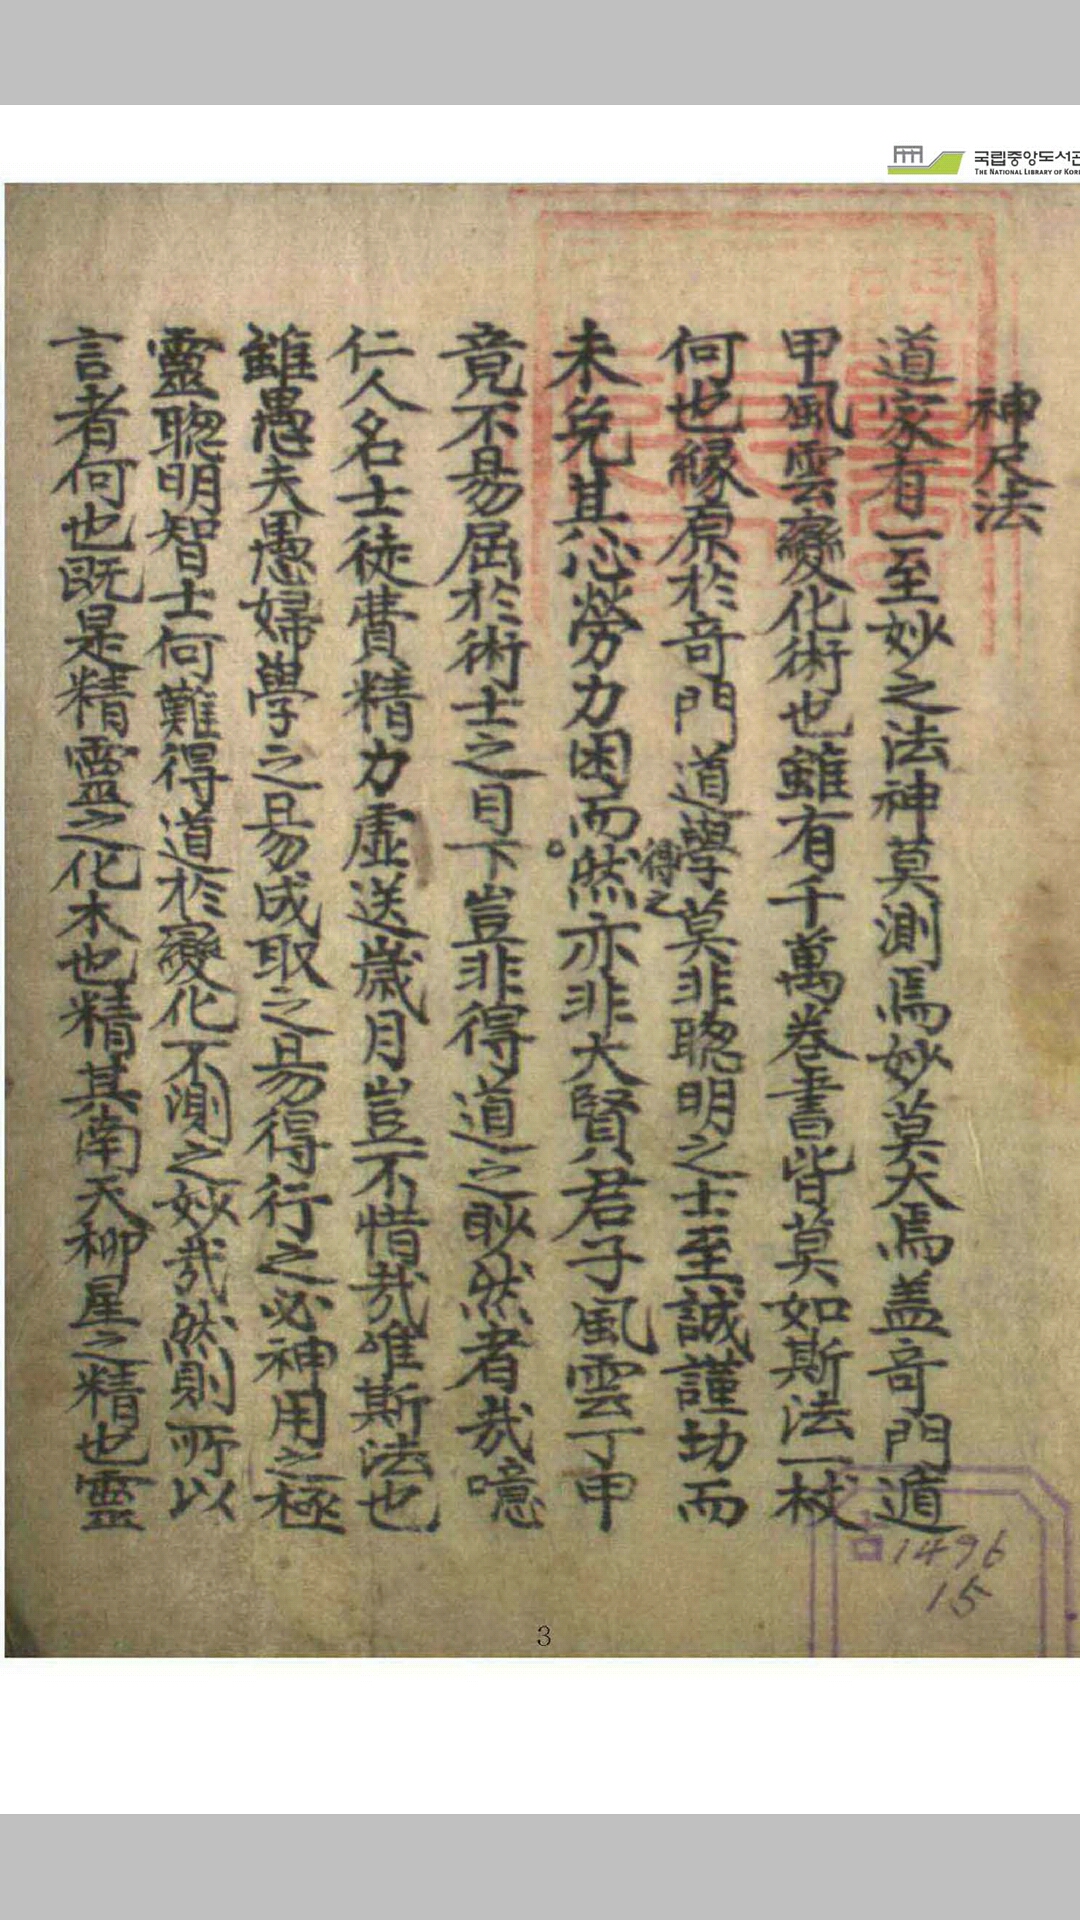 국립중앙도서관
THE NATIONAL LIBRARY OF KORE
神尺法
道家有一至妙之法神莫測焉妙莫大焉盖竒門遁
甲風雲變化術也雖有千萬卷書皆莫如斯法一杖
何也緣原於竒門道學莫非聦明之士至誠謹劫而
得之
未免其心勞力困而然亦非大賢君子風雲丁甲
竟不易屈於術士之目下豈非得道之眇然者哉噫
仁人名士徒費精力虛送歲月豈不惜哉唯斯法也
雖愚夫愚婦學之易成取之易得行之必神用之極
靈聦明智士何難得道於變化不測之妙哉然則所以
言者何也既是精靈之化木也精其南天柳星之精也靈
古1496
15
3